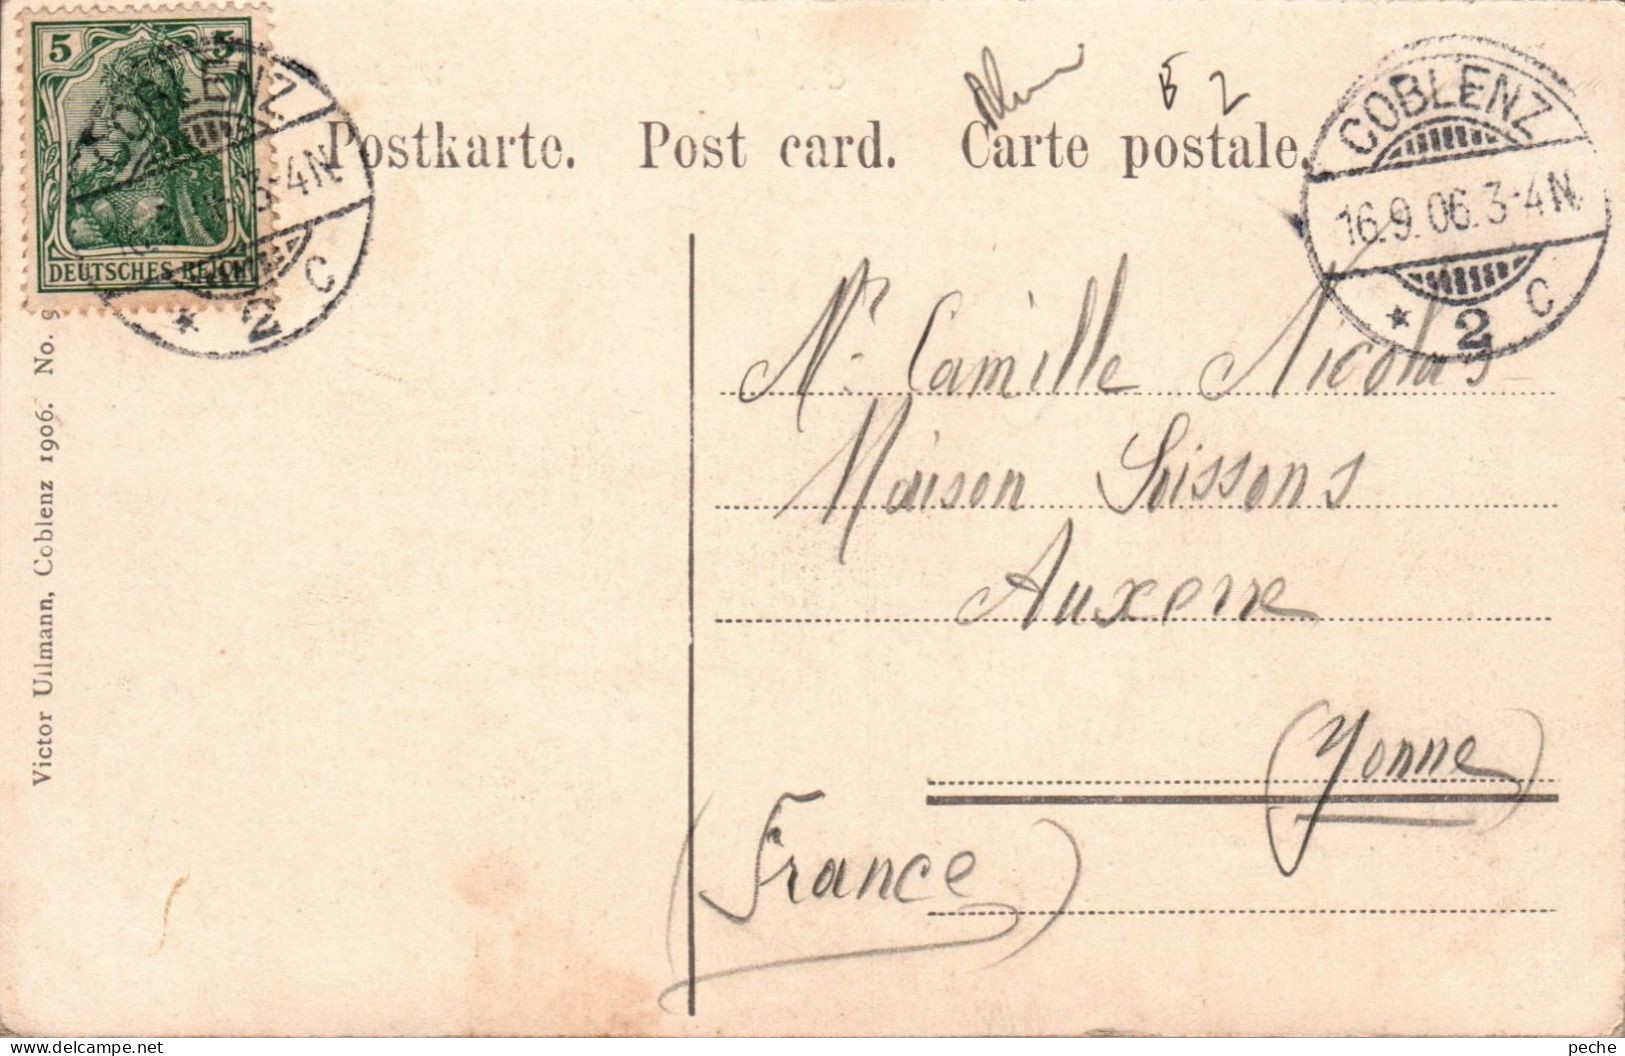 5 5
DEUTSCHES REICH
COBLENZ
3-4N
* 2 C
Postkarte. Post card. Carte postale.
B 2
COBLENZ
16.9.06.3-4N.
* 2 C
Mr. Camille Nicolas
Maison Soissons
Auxerre
(Yonne)
(France)
Victor Ullmann, Coblenz 1906. No. 9
peche